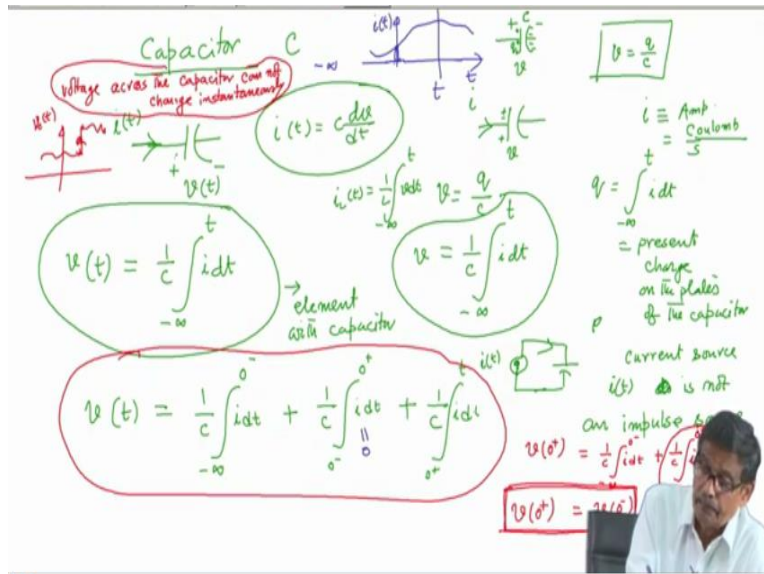 Capacitor C
voltage across the capacitor can not
change instantaneously
i(t)
-∞
t
t
+ C -
v
v = q/c
i(t)
+ -
v(t)
i(t) = C dv/dt
i
v
i ≡ Amp.
= Coulomb/s
i_L(t) = 1/L ∫_{-∞}^{t} vdt
v = q/c
q = ∫_{-∞}^{t} i dt
= present
charge
on the plates
of the capacitor
v(t) = 1/c ∫_{-∞}^{t} idt
v = 1/c ∫_{-∞}^{t} idt
→ element
with capacitor
i(t)
current source
i(t) is not
an impulse
v(t) = 1/c ∫_{-∞}^{0^-} idt + 1/c ∫_{0^-}^{0^+} idt + 1/c ∫_{0^+}^{t} idt
= 0
v(0^+) = 1/c ∫_{-∞}^{0^-} idt + 1/c ∫
v(0^+) = v(0^-)